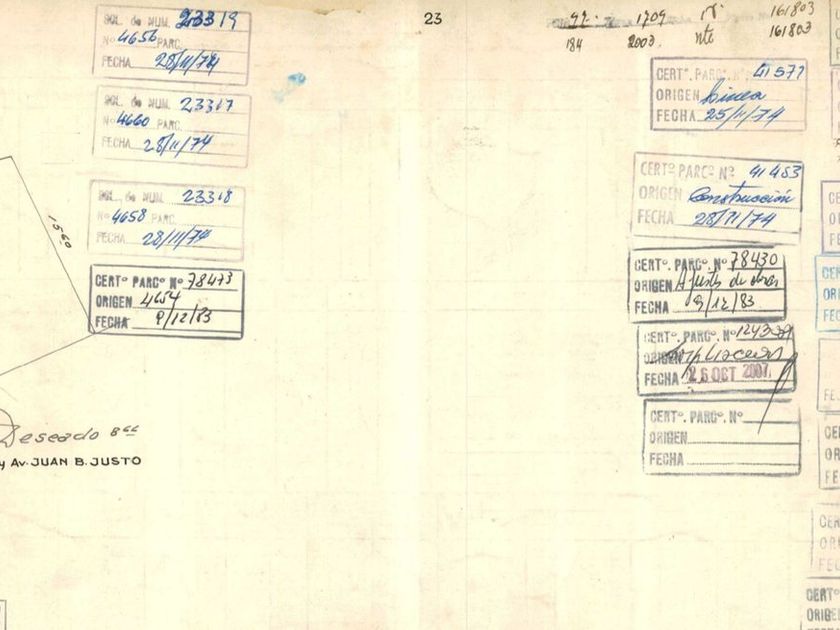 SOL. de NUM. 23319
Nº 4656 PARC.
FECHA 28/11/74
SOL. de NUM. 23317
Nº 4660 PARC.
FECHA 28/11/74
15.60
SOL. de NUM. 23318
Nº 4658 PARC.
FECHA 28/11/74
CERTº PARCº Nº 78473
ORIGEN 4654
FECHA 9/12/83
Deseado
y Av. JUAN B. JUSTO
23
1709
161803
184 2003. nte 161803
CERTº. PARCº. Nº 41577
ORIGEN Linea
FECHA 25/11/74
CERTº PARCº Nº 41483
ORIGEN Construcción
FECHA 28/11/74
CERTº. PARCº. Nº 78430
ORIGEN Ajuste de obras
FECHA 9/12/83
CERTº. PARCº. Nº
ORIGEN
FECHA 26 OCT 2007
CERTº. PARCº. Nº
ORIGEN
FECHA
CERTº
ORIGE